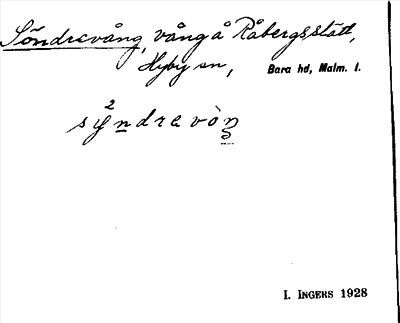 Söndrevång, vång å Råbergsstätt,
Hyby sn, Bara hd, Malm. l.
sy²ndrevòŋ
I. INGERS 1928